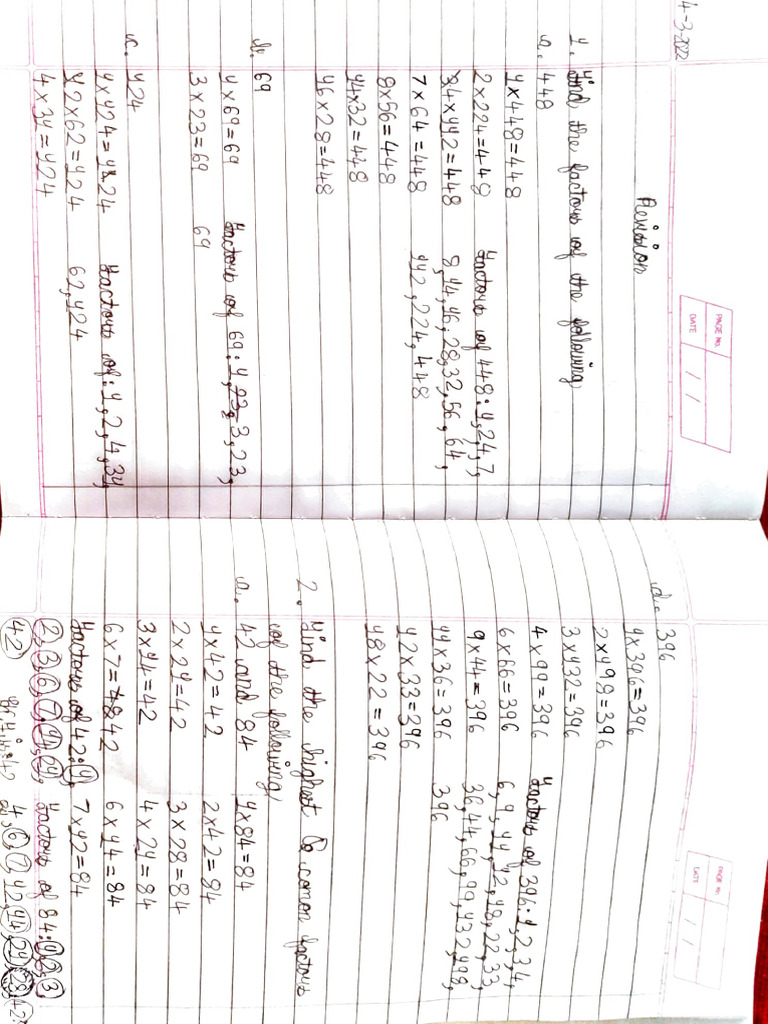 4-3-2022
PAGE NO.
DATE / /
Revision
1. Find the factors of the following
a. 448
1×448=448
2×224=448 Factors of 448:1,2,4,7,
4×112=448 8,14,16,28,32,56,64,
7×64=448 112,224,448
8×56=448
14×32=448
16×28=448
b. 69
1×69=69 Factors of 69:1,23,3,23,
3×23=69 69
c. 124
1×124=124 Factors of:1,2,4,31,
2×62=124 62,124
4×31=124
PAGE NO.
DATE / /
d. 396
1×396=396
2×198=396
3×132=396
4×99=396 Factors of 396:1,2,3,4,
6×66=396 6,9,11,12,18,22,33,
9×44=396 36,44,66,99,132,198,
11×36=396 396
12×33=396
18×22=396
2. Find the highest comon factors
of the following
a. 42 and 84 1×84=84
1×42=42 2×42=84
2×21=42 3×28=84
3×14=42 4×21=84
6×7=42 6×14=84
Factors of 42:1, 7×12=84
2,3,6,7,14,21, Factors of 84:1,2,3
42 4,6,7,12,14,21,28,42